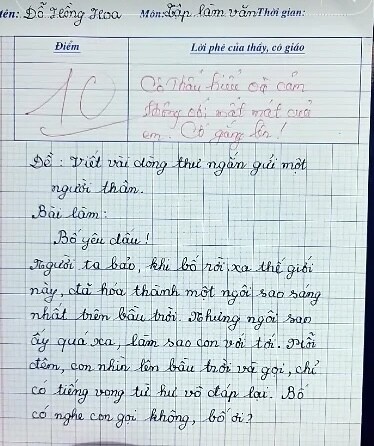 tên: Đỗ Hồng Hoa Môn: Tập làm văn Thời gian:
Điểm Lời phê của thầy, cô giáo
10 Cô thấu hiểu và cảm
thông với mất mát của
em. Cố gắng lên!
Đề: Viết vài dòng thư ngắn gửi một
người thân.
Bài làm:
Bố yêu dấu!
Người ta bảo, khi bố rời xa thế giới
này, đã hóa thành một ngôi sao sáng
nhất trên bầu trời. Nhưng ngôi sao
ấy quá xa, làm sao con với tới. Mỗi
đêm, con nhìn lên bầu trời và gọi, chỉ
có tiếng vong từ hư vô đáp lại. Bố
có nghe con gọi không, bố ơi?